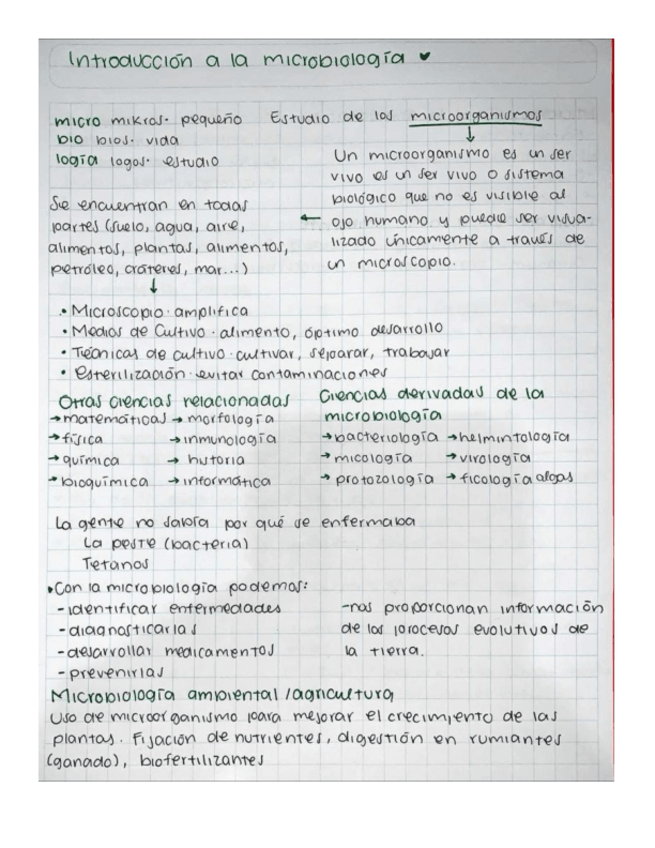 Introducción a la microbiología
micro mikros· pequeño
bio bios· vida
logía logos· estudio
Estudio de los microorganismos
Un microorganismo es un ser
vivo es un ser vivo o sistema
biológico que no es visible al
ojo humano y puede ser visua-
lizado únicamente a través de
un microscopio.
Se encuentran en todas
partes (suelo, agua, aire,
alimentos, plantas, alimentos,
petróleo, cráteres, mar...)
• Microscopio· amplifica
• Medios de Cultivo· alimento, óptimo desarrollo
• Técnicas de cultivo· cultivar, separar, trabajar
• Esterilización· evitar contaminaciones
Otras ciencias relacionadas
→ matemáticas → morfología
→ física → inmunología
→ química → historia
→ bioquímica → informática
Ciencias derivadas de la
microbiología
→ bacteriología → helmintología
→ micología → virología
→ protozología → ficología algas
La gente no sabía por qué se enfermaba
La peste (bacteria)
Tetanos
• Con la microbiología podemos:
- identificar enfermedades
- diagnosticarlas
- desarrollar medicamentos
- prevenirlas
- nos proporcionan información
de los procesos evolutivos de
la tierra.
Microbiología ambiental /agricultura
Uso de microorganismo para mejorar el crecimiento de las
plantas. Fijación de nutrientes, digestión en rumiantes
(ganado), biofertilizantes